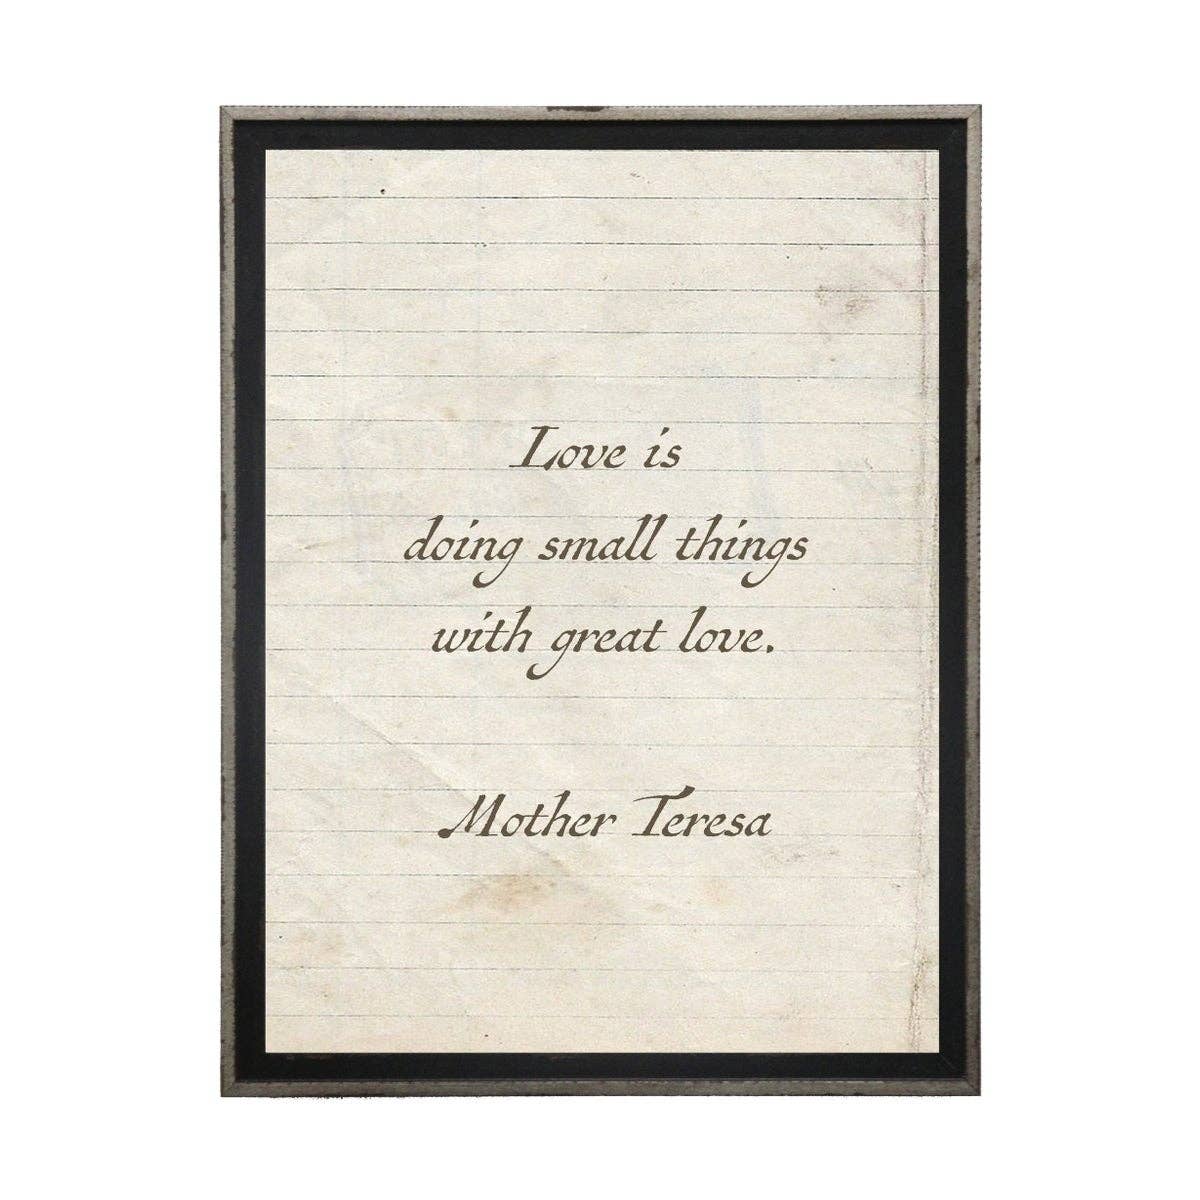 Love is
doing small things
with great love.
Mother Teresa